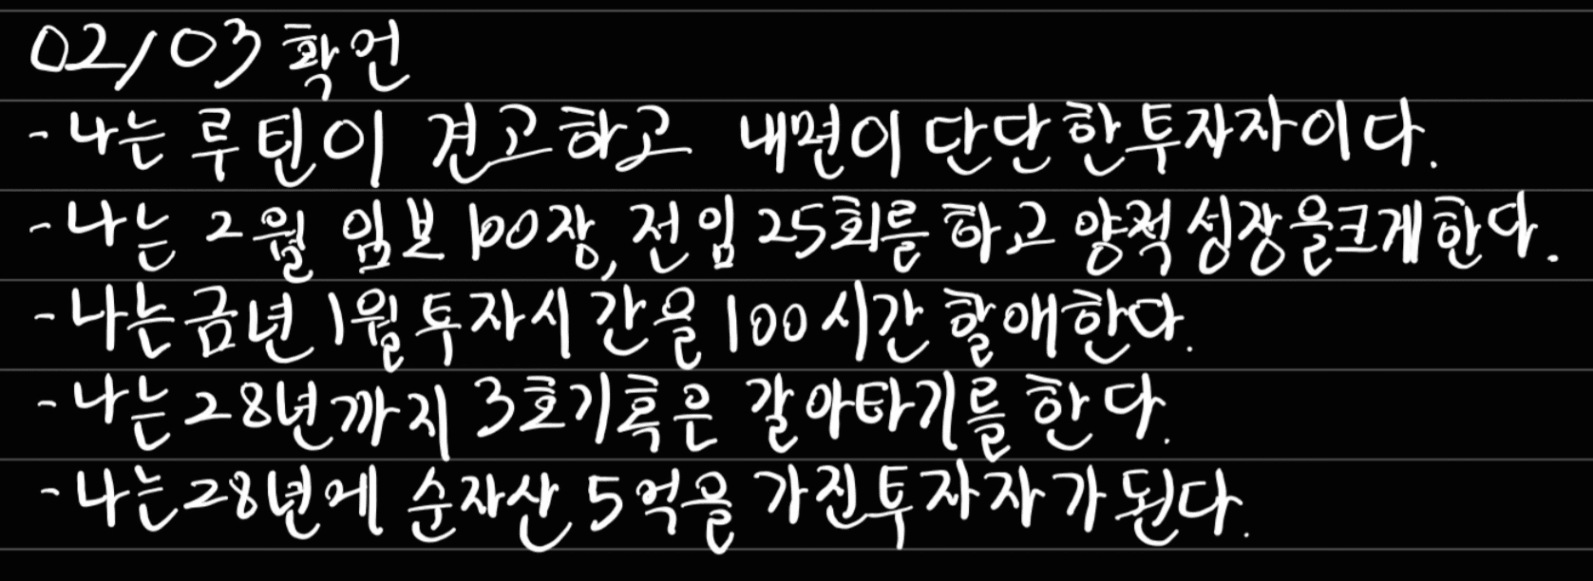 02/03 확언
- 나는 루틴이 견고하고 내면이 단단한 투자자이다.
- 나는 2월 임보 100장, 전임 25회를 하고 양적 성장을 크게 한다.
- 나는 금년 1월 투자시간을 100시간 할애한다.
- 나는 28년까지 3호기 혹은 갈아타기를 한다.
- 나는 28년에 순자산 5억을 가진 투자자가 된다.